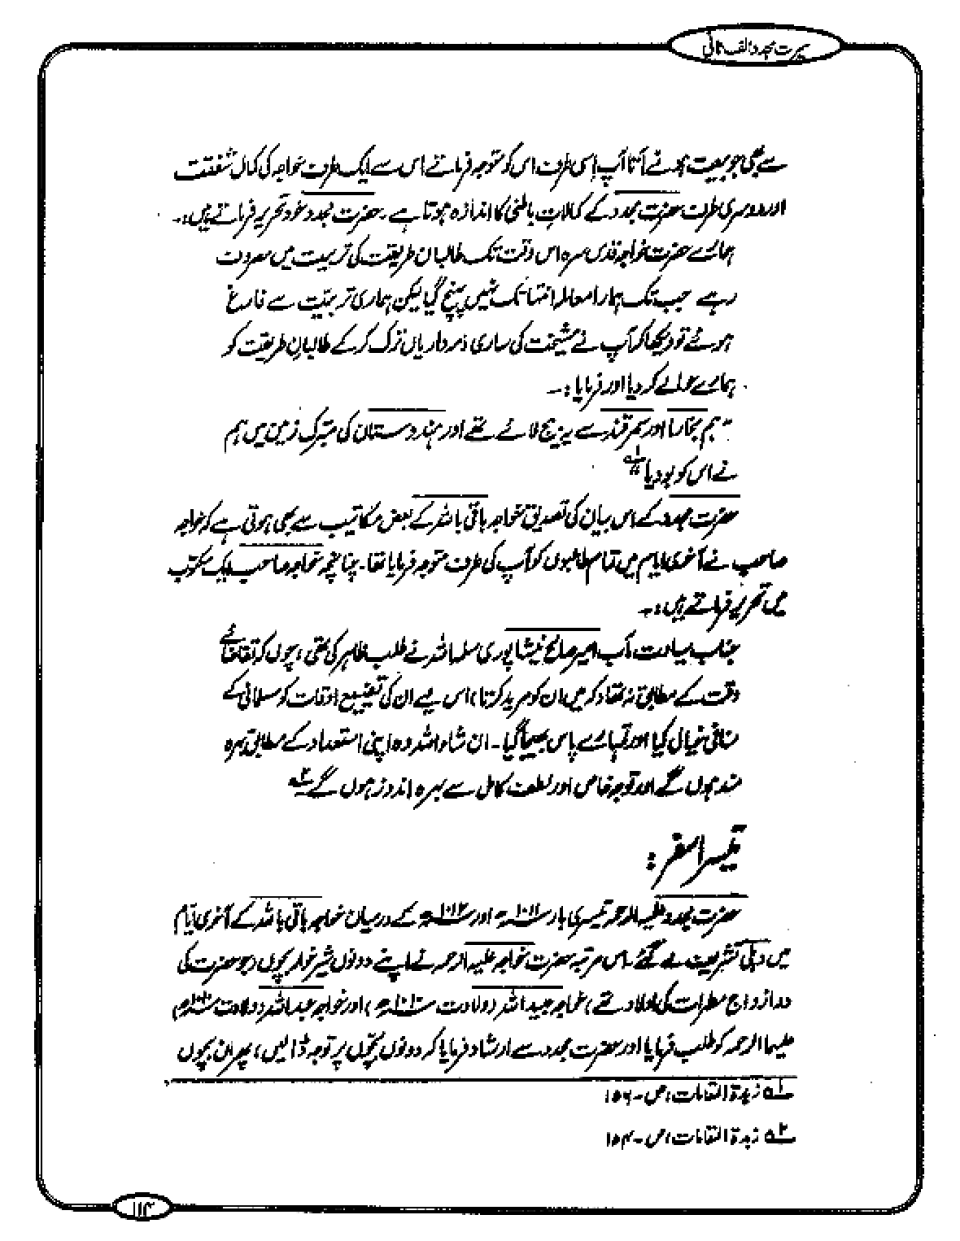 سیرت مجدد الف ثانی
سے بھی جو بیعت ہونے آتا آپ اسی طرف اس کو متوجہ فرماتے اس سے ایک طرف خواجہ کی کمال شفقت
اور دوسری طرف حضرت مجدد کے کمالاتِ باطنی کا اندازہ ہوتا ہے۔ حضرت مجدد خود تحریر فرماتے ہیں:۔
ہمارے حضرت خواجہ قدس سرہ اس وقت تک طالبان طریقت کی تربیت میں مصروف
رہے جب تک ہمارا معاملہ انتہا تک نہیں پہنچ گیا لیکن ہماری تربیت سے فارغ
ہوئے تو دیکھا کہ آپ نے مشیخت کی ساری ذمہ داریاں ترک کر کے طالبانِ طریقت کو
ہمارے حوالے کر دیا اور فرمایا:۔
"ہم بخارا اور سمرقند سے یہ بیج لائے تھے اور ہندوستان کی متبرک زمین میں ہم
نے اس کو بو دیا ۱؎"
حضرت مجدد کے اس بیان کی تصدیق خواجہ باقی باللہ کے بعض مکاتیب سے بھی ہوتی ہے کہ خواجہ
صاحب نے آخری ایام میں تمام طالبوں کو آپ کی طرف متوجہ فرمایا تھا۔ چنانچہ خواجہ صاحب ایک مکتوب
میں تحریر فرماتے ہیں:۔
جناب سیادت مآب امیر صالح نیشاپوری سلمہ اللہ نے طلب ظاہر کی تھی، چوں کہ تقاضائے
وقت کے مطابق نہ تھا کہ میں ان کو مرید کرتا، اس لیے ان کی تضییع اوقات کو مسلمانی کے
منافی خیال کیا اور تمہارے پاس بھیجا گیا۔ ان شاء اللہ وہ اپنی استعداد کے مطابق بہرہ
مند ہوں گے اور توجہ خاص اور لطف کامل سے بہرہ اندوز ہوں گے ۲؎
تیسرا سفر:
حضرت مجدد علیہ الرحمہ تیسری بار ۱۰۱۱ھ اور ۱۰۱۲ھ کے درمیان خواجہ باقی باللہ کے آخری ایام
میں دہلی تشریف لے گئے۔ اس مرتبہ حضرت خواجہ علیہ الرحمہ نے اپنے دونوں شیر خوار بچوں (جو حضرت کی
دو ازواج مطہرات کی اولاد تھے) خواجہ عبیداللہ (ولادت ۱۰۱۰ھ) اور خواجہ عبداللہ (ولادت ۱۰۱۰ھ)
علیہما الرحمہ کو طلب فرمایا اور حضرت مجدد سے ارشاد فرمایا کہ دونوں بچوں پر توجہ ڈالیں، پھر ان بچوں
۱؎ زبدۃ المقامات، ص۔ ۱۵۶
۲؎ زبدۃ المقامات، ص۔ ۱۵۴
۱۱۴